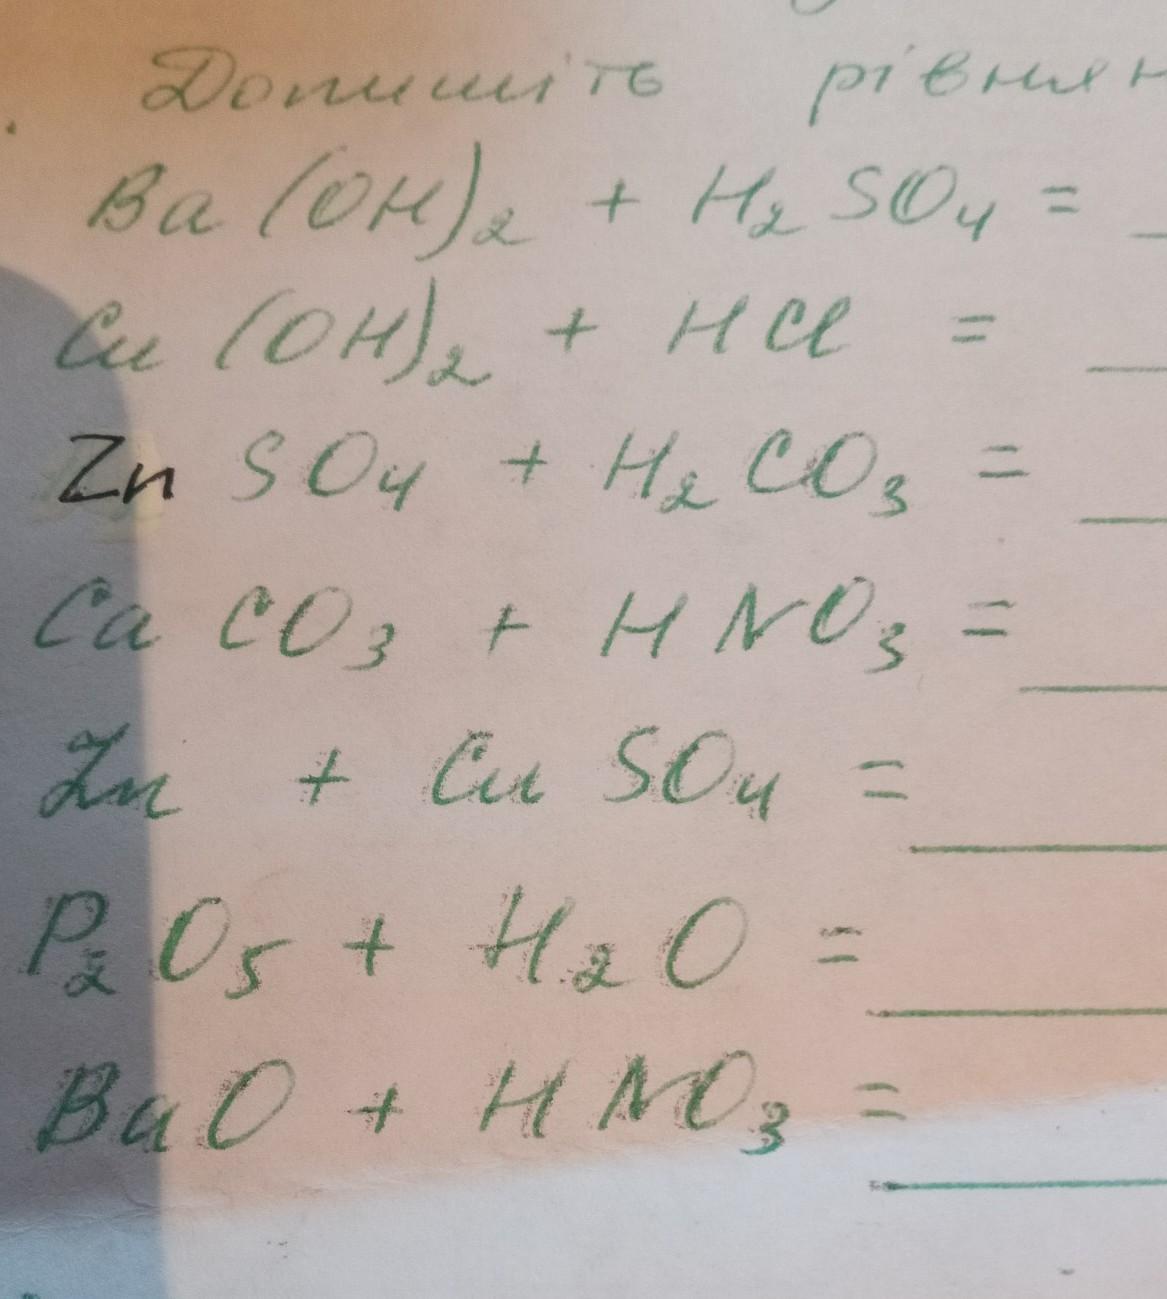 Допишіть рівнян
Ba(OH)₂ + H₂SO₄ =
Cu(OH)₂ + HCl =
ZnSO₄ + H₂CO₃ =
CaCO₃ + HNO₃ =
Zn + CuSO₄ =
P₂O₅ + H₂O =
BaO + HNO₃ =